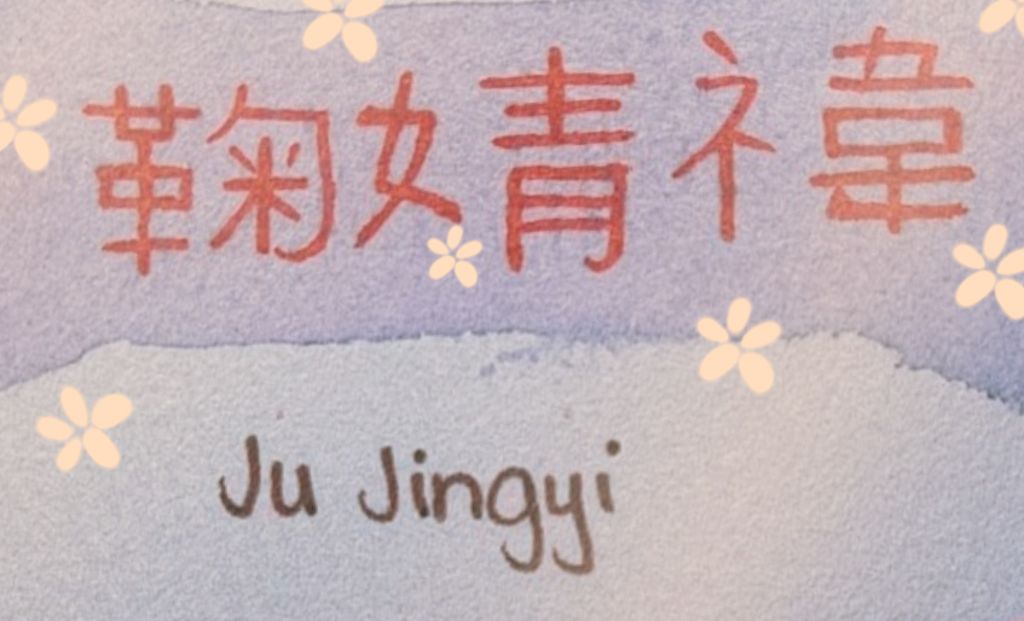 鞠婧禕
Ju Jingyi